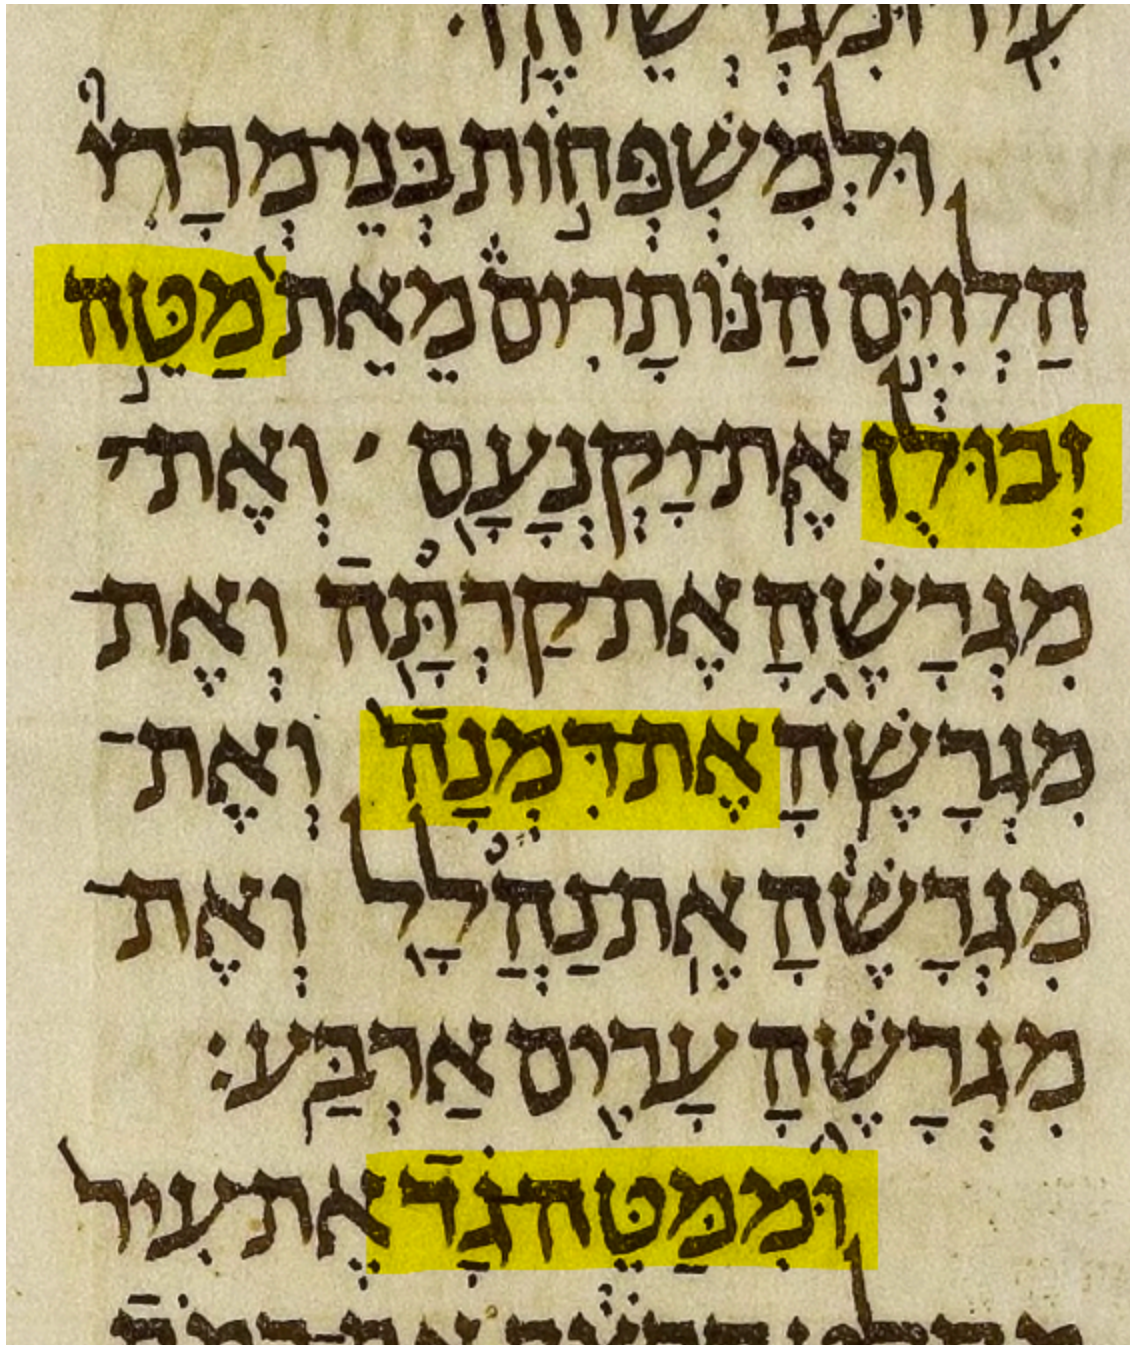 עִיר וּמִגְרְשֵׁיהֶן׃
וּלְמִשְׁפְּחוֹת בְּנֵי־מְרָרִי
הַלְוִיִּם הַנּוֹתָרִים מֵאֵת מַטֵּה
זְבוּלֻן אֶת־יַקְנֳעָם וְאֶת־
מִגְרָשֶׁהָ אֶת־קַרְתָּה וְאֶת־
מִגְרָשֶׁהָ אֶת־דִּמְנָה וְאֶת־
מִגְרָשֶׁהָ אֶת־נַהֲלָל וְאֶת־
מִגְרָשֶׁהָ עָרִים אַרְבַּע׃
וּמִמַּטֵּה־גָד אֶת־עִיר